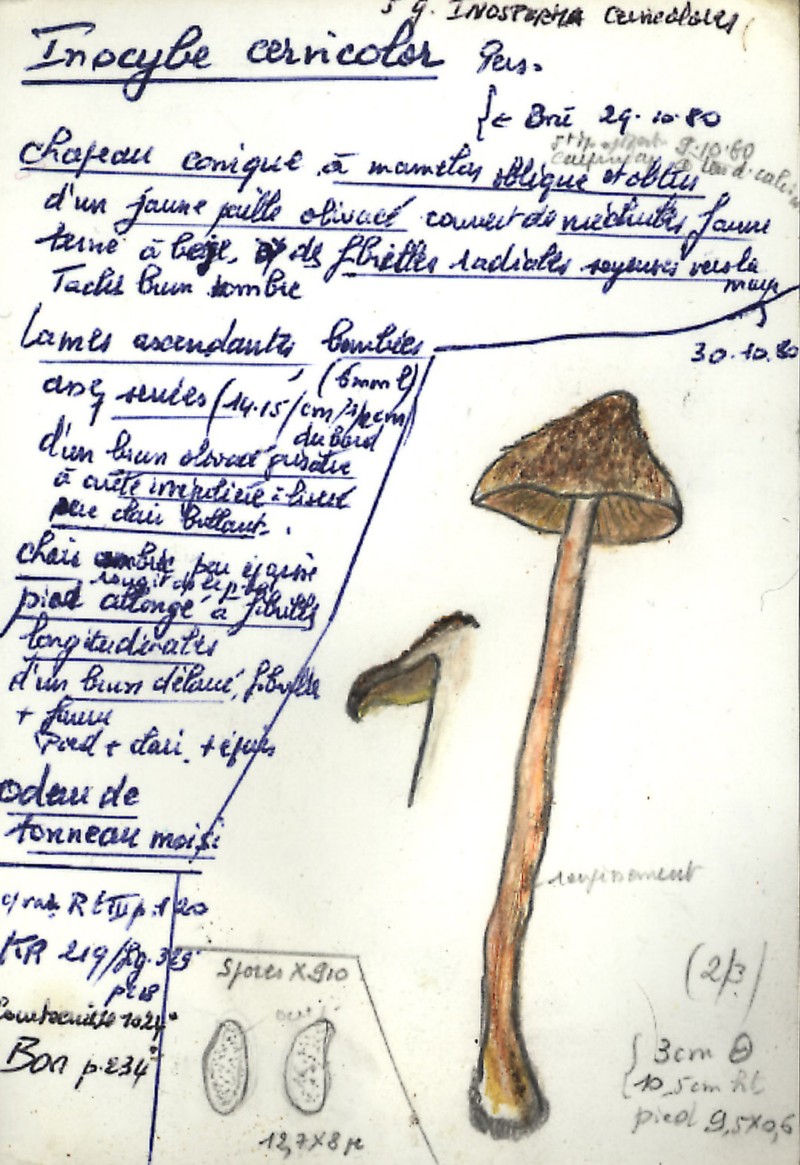 S g. INOSPERMA Cervicolores
Inocybe cervicolor Pers.
{← Bré 29.10.80
9.10.80
chapeau conique à mamelon oblique et obtus
d'un jaune paille olivacé couvert de méchules jaune
terne à beige, de fibrilles radiales soyeuses vers la
marge
Taché brun sombre
30.10.80
Lames ascendantes, bombées
(6mm l)
assez serrées (14.15/cm
du bord
d'un brun olivacé grisâtre
à arête irrégulière à liseré
peu clair brillant.
chair ombrée peu épaisse
rougit
pied allongé à fibrilles
longitudinales
d'un brun délavé, fibrille
+ jaune
Pied + clair, + épais
odeur de
tonneau moisi
rougissement
R t III p. 120
KR 219/Lg. 329
pl 18
Courtecuisse 1024°
Bon p. 234°
Spores X 910
12,7X8 µ
(2/3)
{ 3cm Ө
10,5cm ht
pied 9,5X0,6